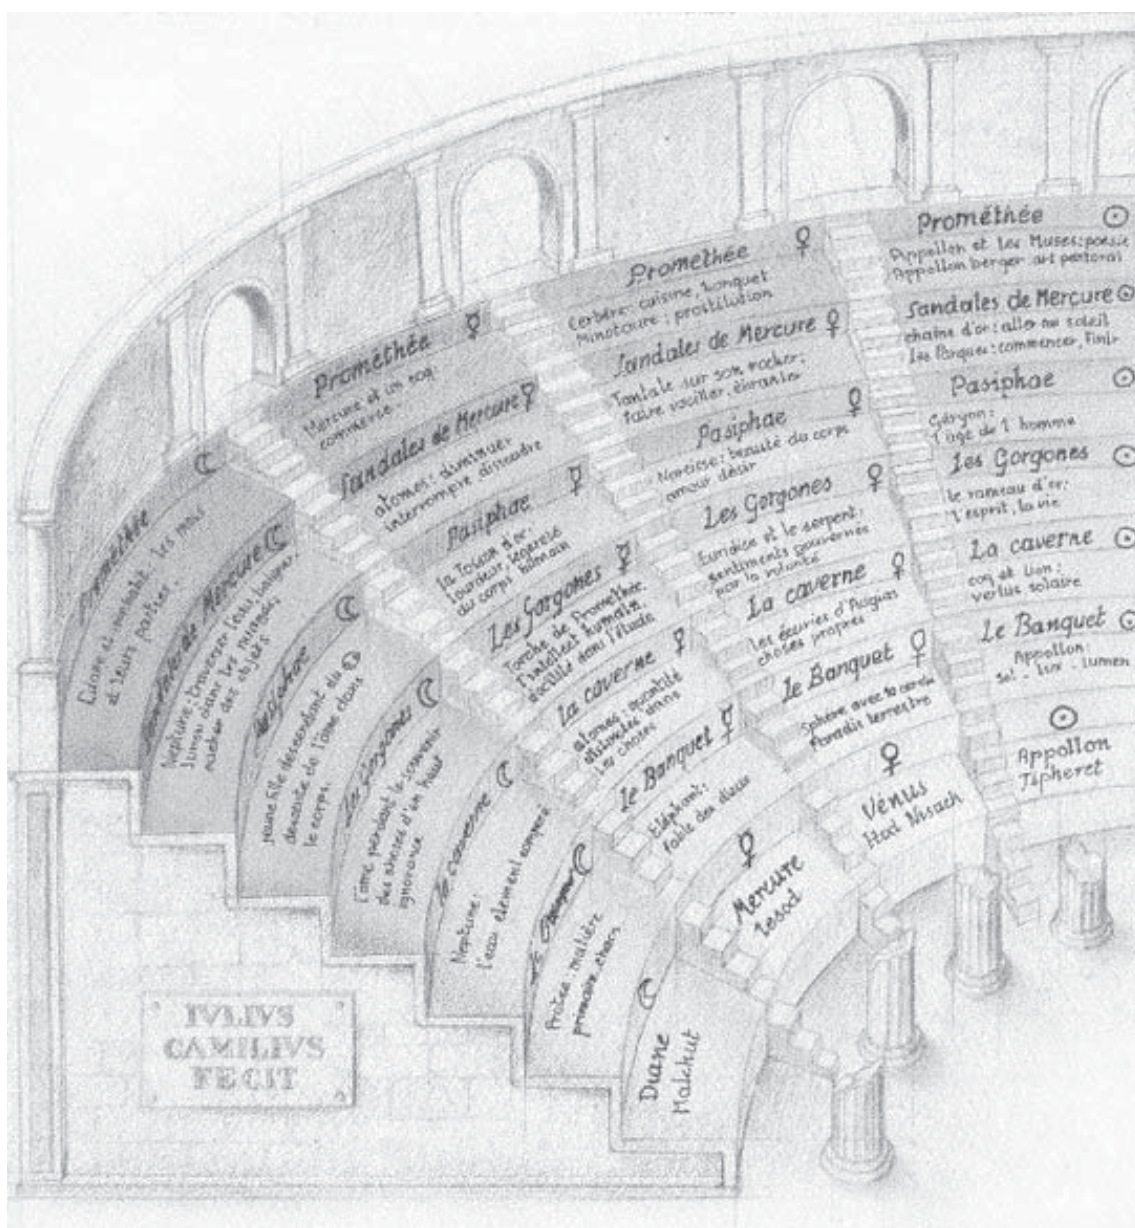 Prométhée
Diane et
les mois
et leurs parties.
Sandales de Mercure
Neptune: traverser l'eau, baigner,
Junon dans les nuages:
cacher des objets
Pasiphae
jeune fille descendant du
descente de l'âme dans
le corps.
Les Gorgones
l'âme perdant le souvenir
des choses d'en haut
ignorance
la caverne
Neptune:
l'eau élément composé
Le Banquet
Protée: matière
première, chaos
Diane
Malchut
Prométhée
Mercure et un coq:
commerce.
Sandales de Mercure
atomes: diminuer
interrompre, dissoudre
Pasiphae
la Toison d'or:
lourdeur, légèreté
du corps humain
Les Gorgones
Torche de Prométhée:
l'intellect humain,
docilité dans l'étude
la caverne
atomes: quantité
distincte dans
les choses
le Banquet
Eléphant:
fable des dieux
Mercure
Iesod
Promethée
Cerbère: cuisine, banquet
Minotaure: prostitution
Sandales de Mercure
Tantale sur son rocher:
faire vaciller, ébranler
Pasiphae
Narcisse: beauté du corps
amour désir
Les Gorgones
Euridice et le serpent:
sentiments gouvernés
par la volonté
La caverne
les écuries d'Augias
choses propres
le Banquet
Sphère avec 10 cercles
Paradis terrestre
Vénus
Hod Nisach
Prométhée
Appollon et les Muses: poésie
Appollon berger: art pastoral
Sandales de Mercure
chaine d'or: aller au soleil
les Parques: commencer, finir
Pasiphae
Géryon:
l'âge de l'homme
Les Gorgones
le rameau d'or:
l'esprit, la vie
La caverne
coq et lion:
vertus solaire
Le Banquet
Appollon:
sol - lux - lumen
Appollon
Tipheret
IVLIVS
CAMILIVS
FECIT